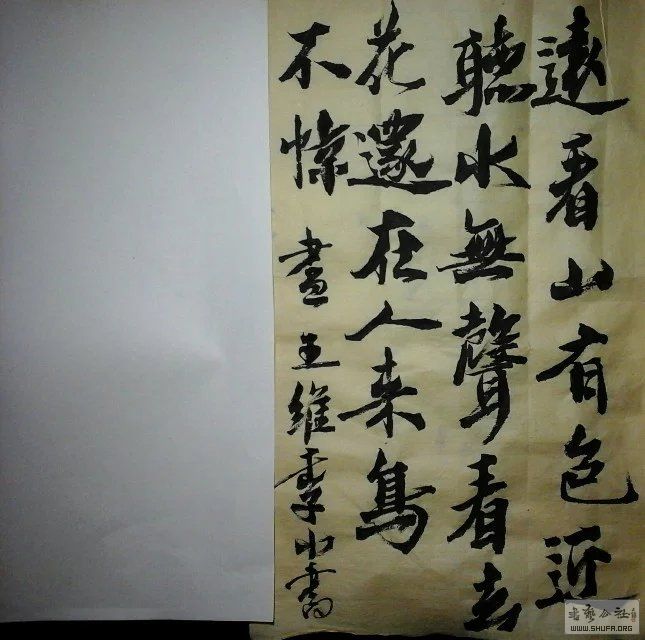 遠看山有色近
聽水無聲春去
花還在人来鳥
不惊 畫 王維 李小
书艺公社
WWW.SHUFA.ORG